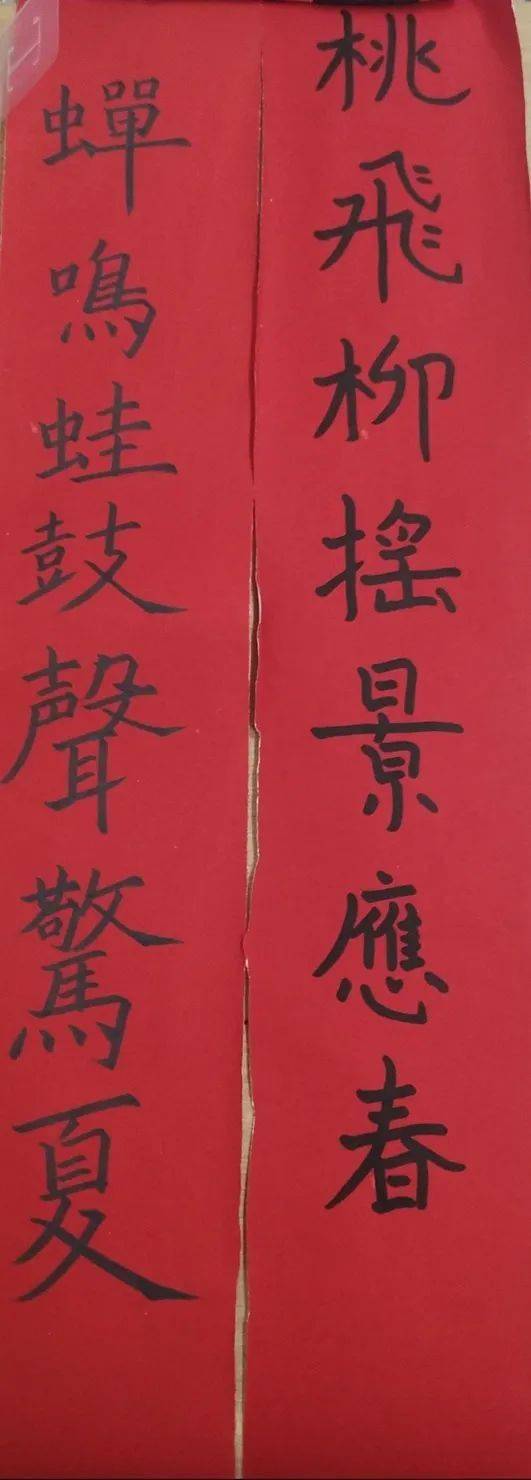 桃飛柳摇景應春
蟬鳴蛙鼓聲驚夏